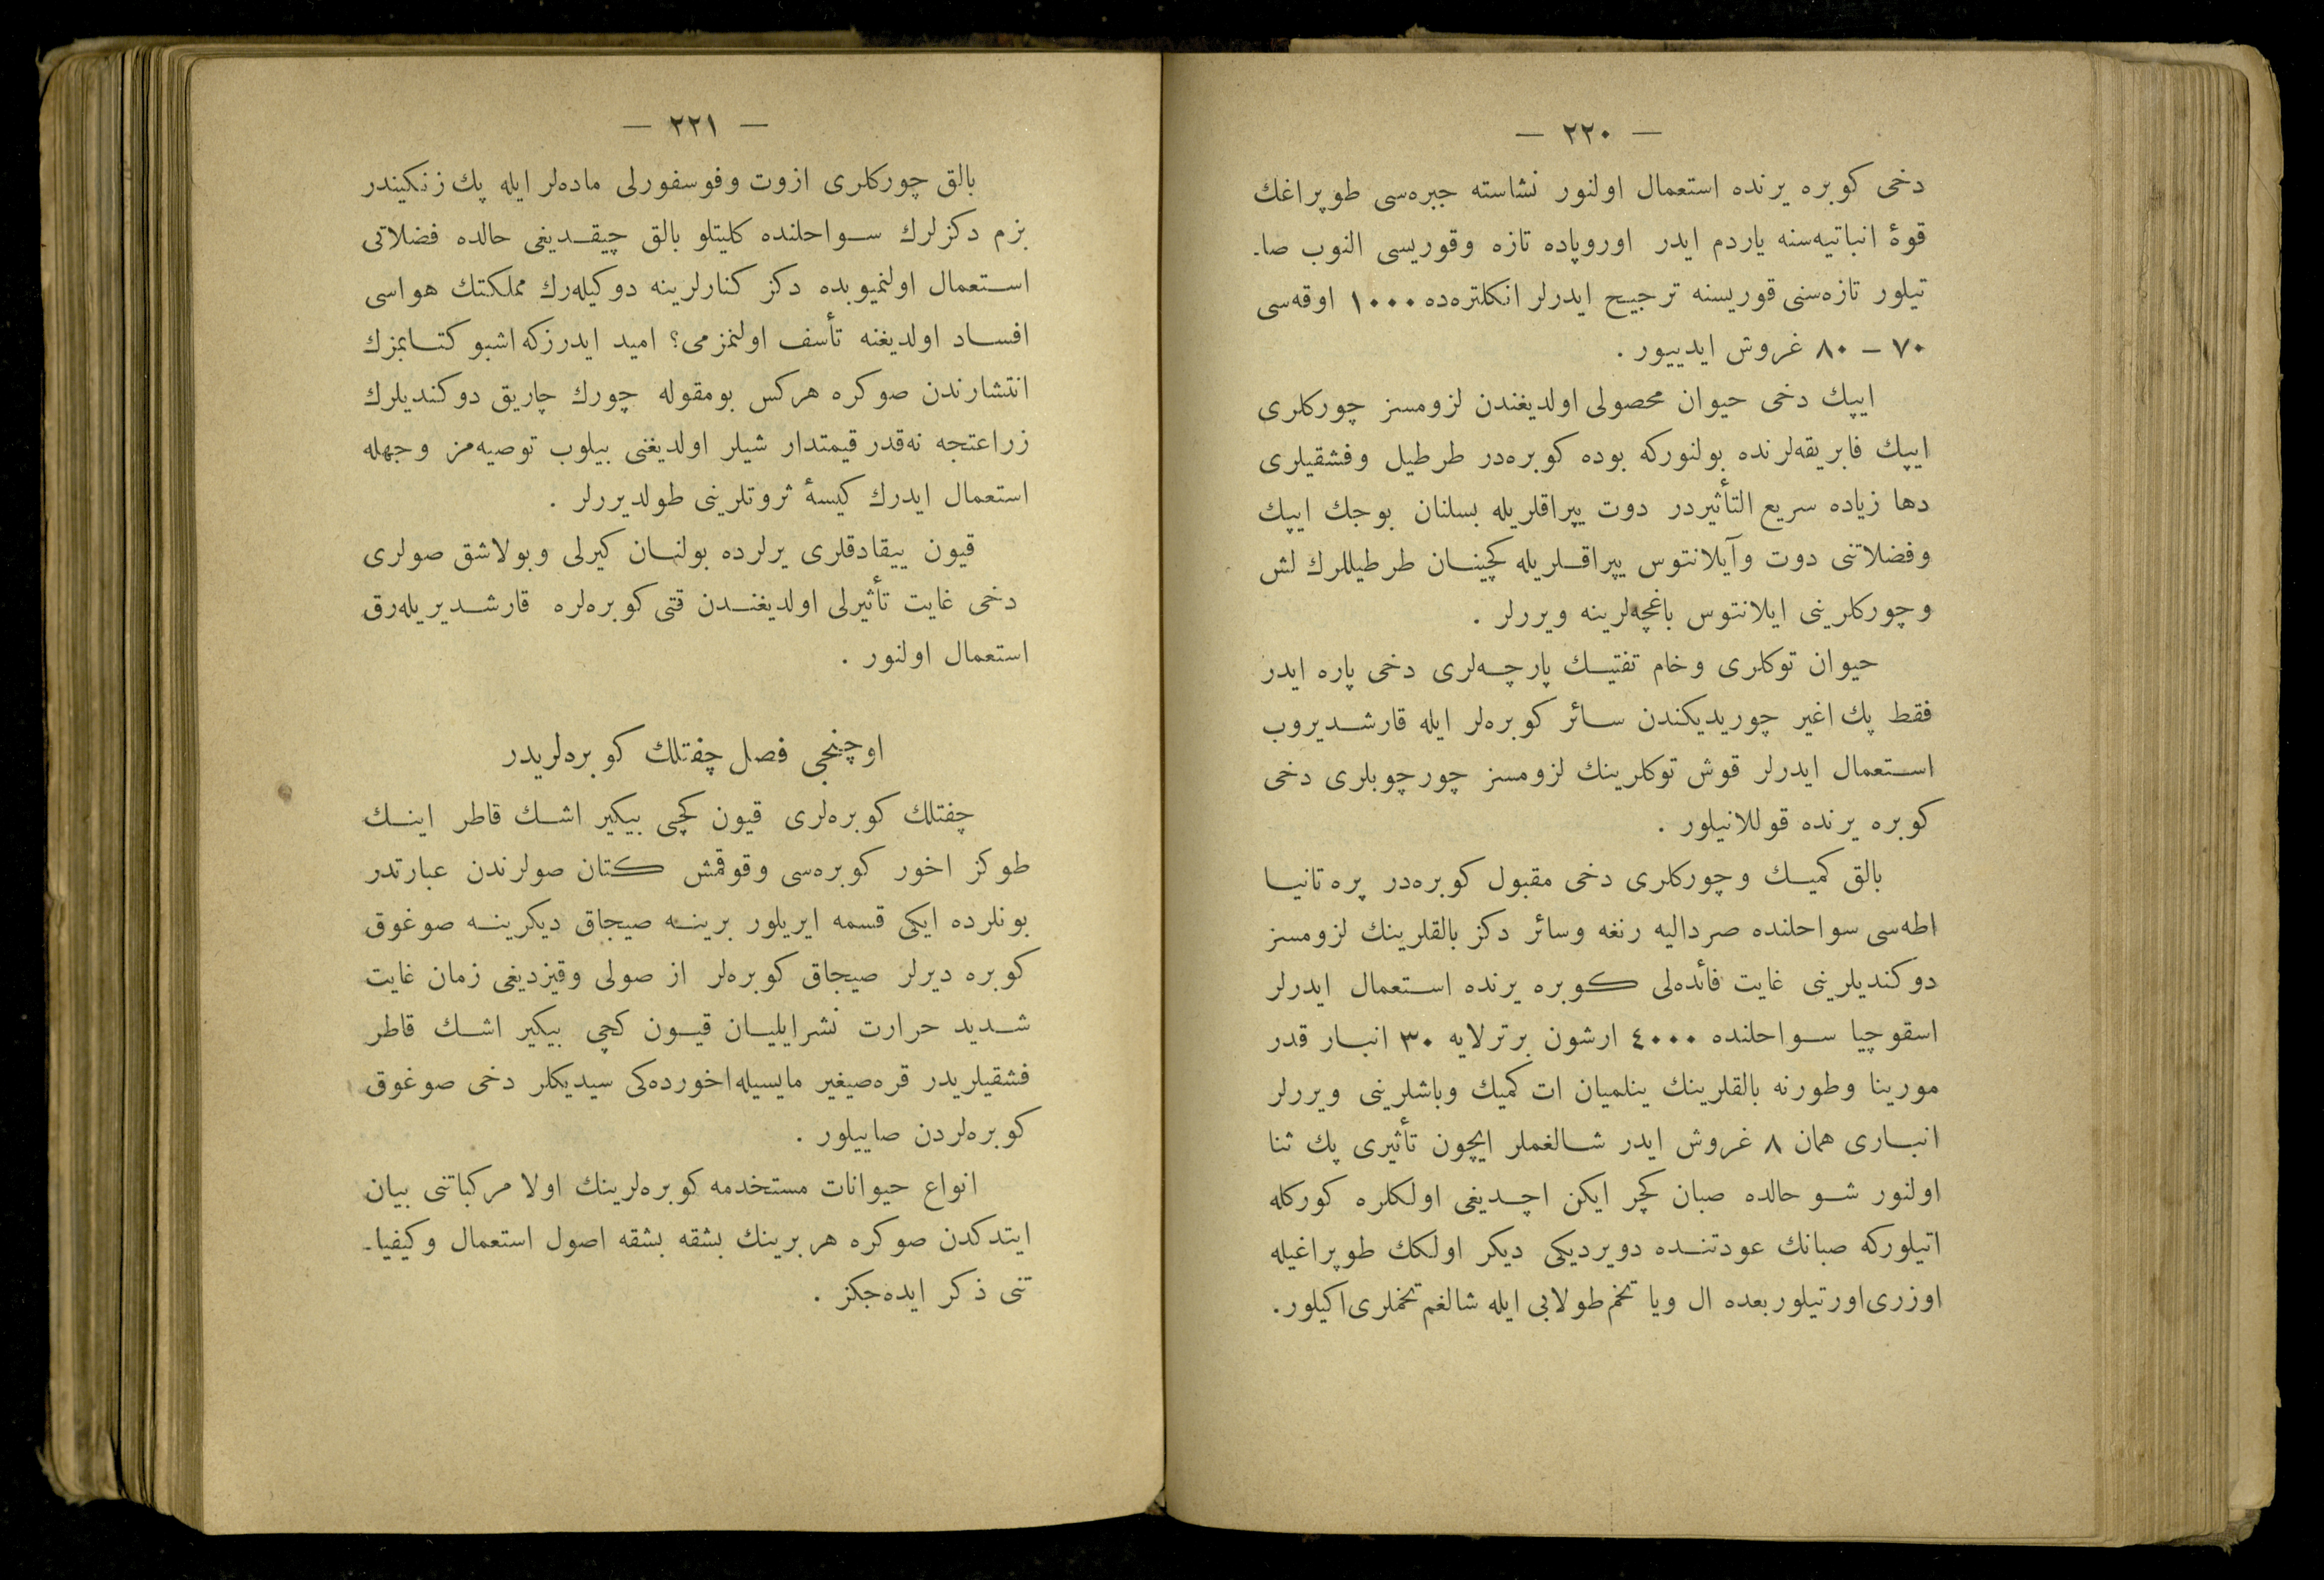 — ٢٢٠ —
دخى كوبره يرنده استعمال اولنور نشاسته جبره‌سى طوپراغك
قوهٔ انباتيه‌سنه ياردم ايدر اوروپاده تازه وقوريسى النوب صا-
تيلور تازه‌سنى قوريسنه ترجيح ايدرلر انكلتره‌ده ١٠٠٠ اوقه‌سى
٧٠ – ٨٠ غروش ايدييور .
ايپك دخى حيوان محصولى اولديغندن لزومسز چوركلرى
ايپك فابريقه‌لرنده بولنوركه بوده كوبره‌در طرطيل وفشقيلرى
دها زياده سريع التأثيردر دوت يپراقلريله بسلنان بوجك ايپك
وفضلاتنى دوت وآيلانتوس يپراقلريله كچينان طرطيللرك لش
وچوركلرينى ايلانتوس باغچه‌لرينه ويررلر .
حيوان توكلرى وخام تفتيك پارچه‌لرى دخى پاره ايدر
فقط پك اغير چوريديكندن سائر كوبره‌لر ايله قارشديروب
استعمال ايدرلر قوش توكلرينك لزومسز چورچوبلرى دخى
كوبره يرنده قوللانيلور .
بالق كميك وچوركلرى دخى مقبول كوبره‌در پره‌تانيا
اطه‌سى سواحلنده صرداليه رنغه وسائر دكز بالقلرينك لزومسز
دوكنديلرينى غايت فائده‌لى كوبره يرنده استعمال ايدرلر
اسقوچيا سواحلنده ٤٠٠٠ ارشون برترلايه ٣٠ انبار قدر
مورينا وطورنه بالقلرينك ينلميان ات كميك وباشلرينى ويررلر
انبارى همان ٨ غروش ايدر شالغملر ايچون تأثيرى پك ثنا
اولنور شو حالده صبان كچر ايكن اچديغى اولكلره كوركله
اتيلوركه صبانك عودتنده دويرديكى ديكر اولكك طوپراغيله
اوزرى اورتيلور بعده ال ويا تخم طولابى ايله شالغم تخملرى اكيلور.
— ٢٢١ —
بالق چوركلرى ازوت وفوسفورلى ماده‌لر ايله پك زنكيندر
بزم دكزلرك سواحلنده كليتلو بالق چيقديغى حالده فضلاتى
استعمال اولنميوبده دكز كنارلرينه دوكيله‌رك مملكتك هواسى
افساد اولديغنه تأسف اولنمزمى؟ اميد ايدرزكه اشبو كتابمزك
انتشارندن صوكره هركس بومقوله چورك چاريق دوكنديلرك
زراعتجه نه‌قدر قيمتدار شيلر اولديغنى بيلوب توصيه‌مز وجهله
استعمال ايدرك كيسهٔ ثروتلرينى طولديررلر .
قيون ييقادقلرى يرلرده بولنان كيرلى وبولاشق صولرى
دخى غايت تأثيرلى اولديغندن قتى كوبره‌لره قارشديريله‌رق
استعمال اولنور .
اوچنجى فصل چفتلك كوبره‌لريدر
چفتلك كوبره‌لرى قيون كچى بيكير اشك قاطر اينك
طوكز اخور كوبره‌سى وقوقمش كتان صولرندن عبارتدر
بونلرده ايكى قسمه ايريلور برينه صيجاق ديكرينه صوغوق
كوبره ديرلر صيجاق كوبره‌لر از صولى وقيزديغى زمان غايت
شديد حرارت نشرايليان قيون كچى بيكير اشك قاطر
فشقيلريدر قره‌صيغير مايسيله اخورده‌كى سيديكلر دخى صوغوق
كوبره‌لردن صاييلور .
انواع حيوانات مستخدمه كوبره‌لرينك اولا مركباتنى بيان
ايتدكدن صوكره هر برينك بشقه بشقه اصول استعمال وكيفيا-
تنى ذكر ايده‌جكز .